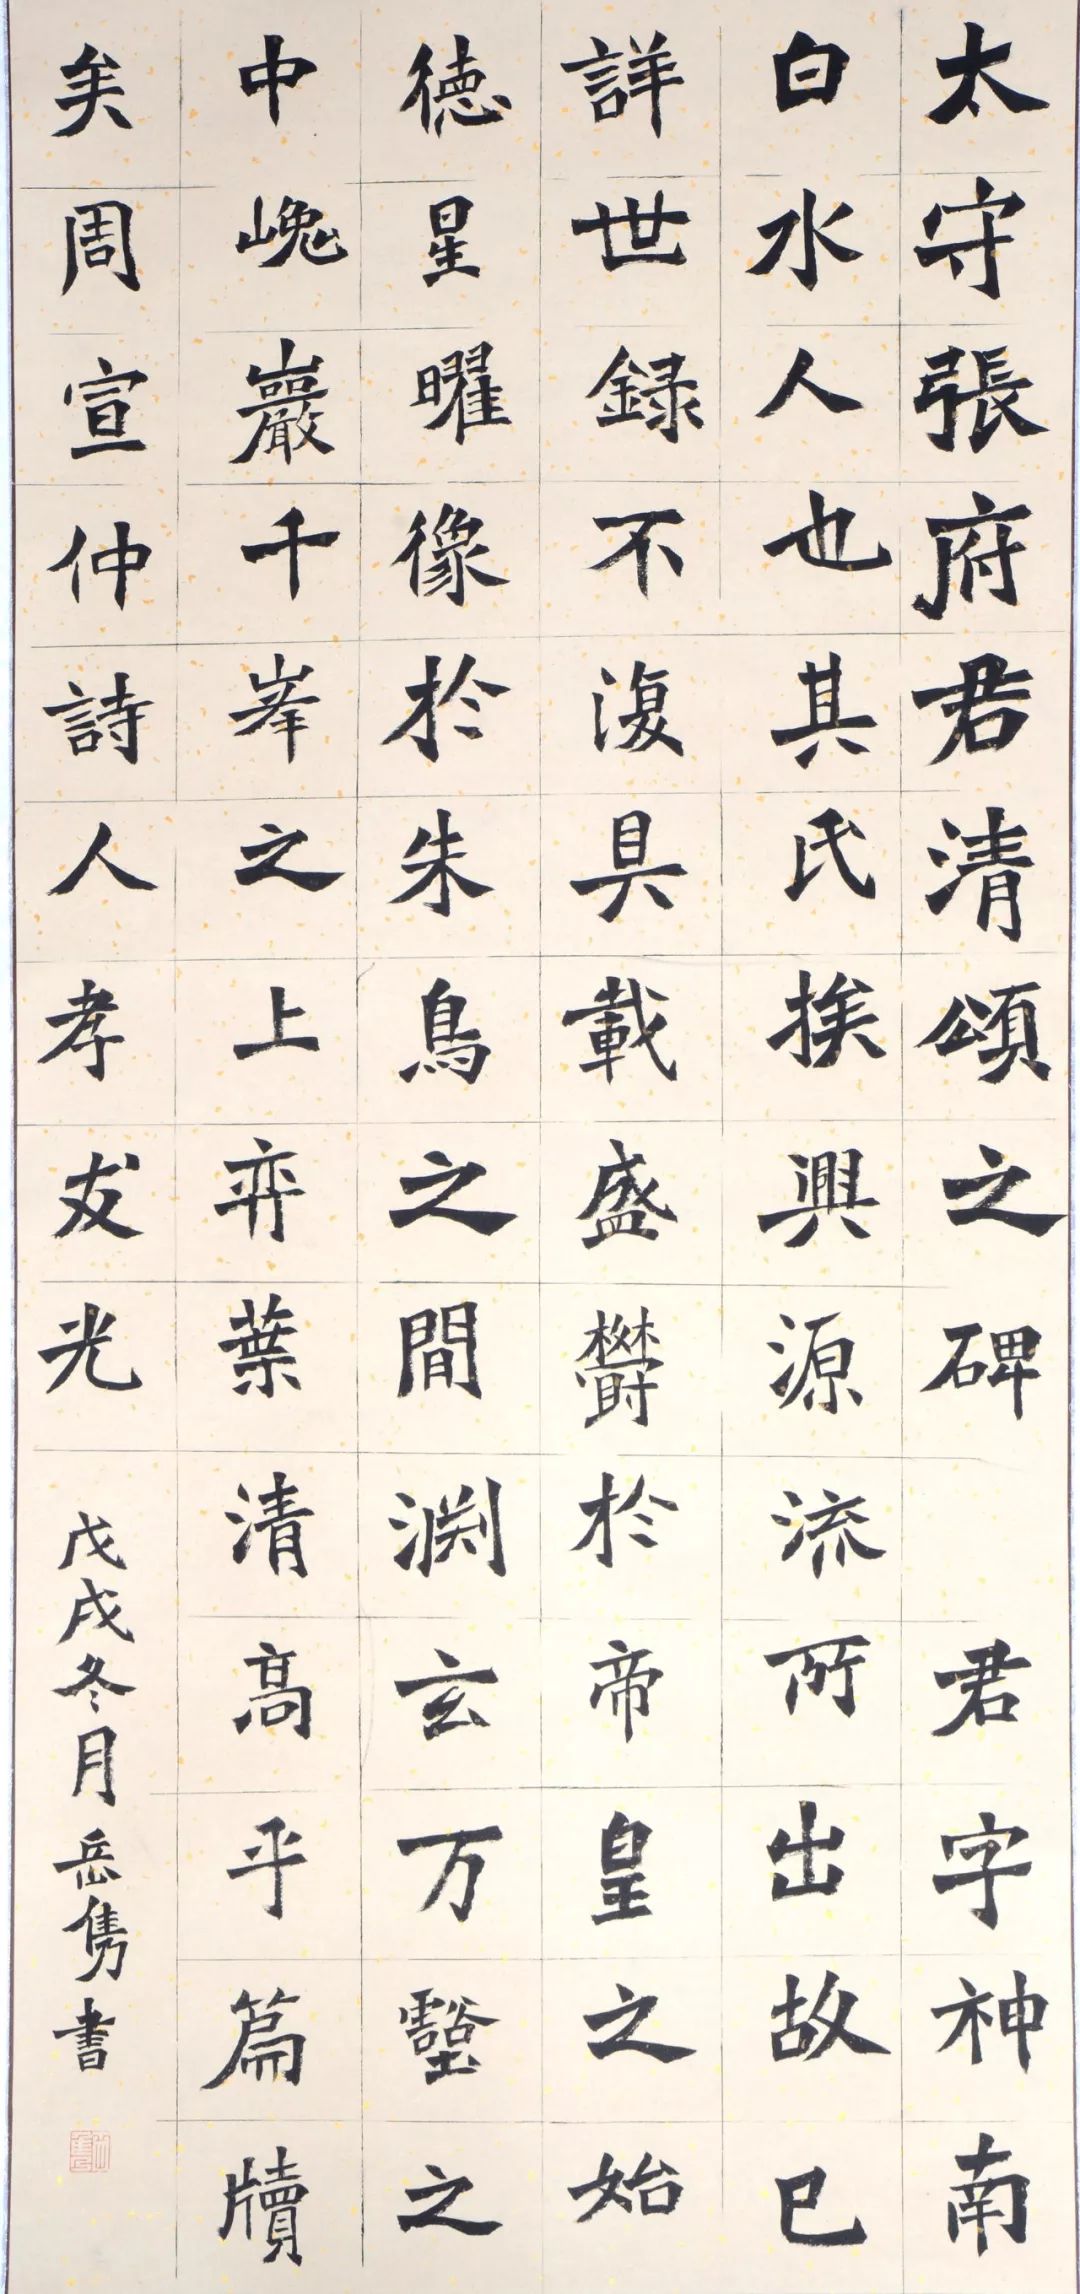 太守張府君清頌之碑 君字神南
白水人也其氏挨興源流所出故已
詳世録不復具載盛欝於帝皇之始
徳星曜像於朱鳥之間渊玄万壑之
中巉巖千峯之上弈葉清高乎篇牘
矣周宣仲詩人孝友光
戊戌冬月岳雋書